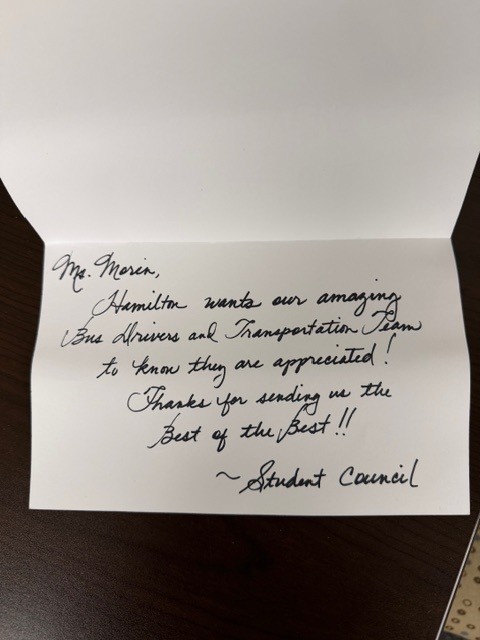 Ms. Morin,
Hamilton wants our amazing
Bus Drivers and Transportation Team
to know they are appreciated!
Thanks for sending us the
Best of the Best!!
~ Student Council